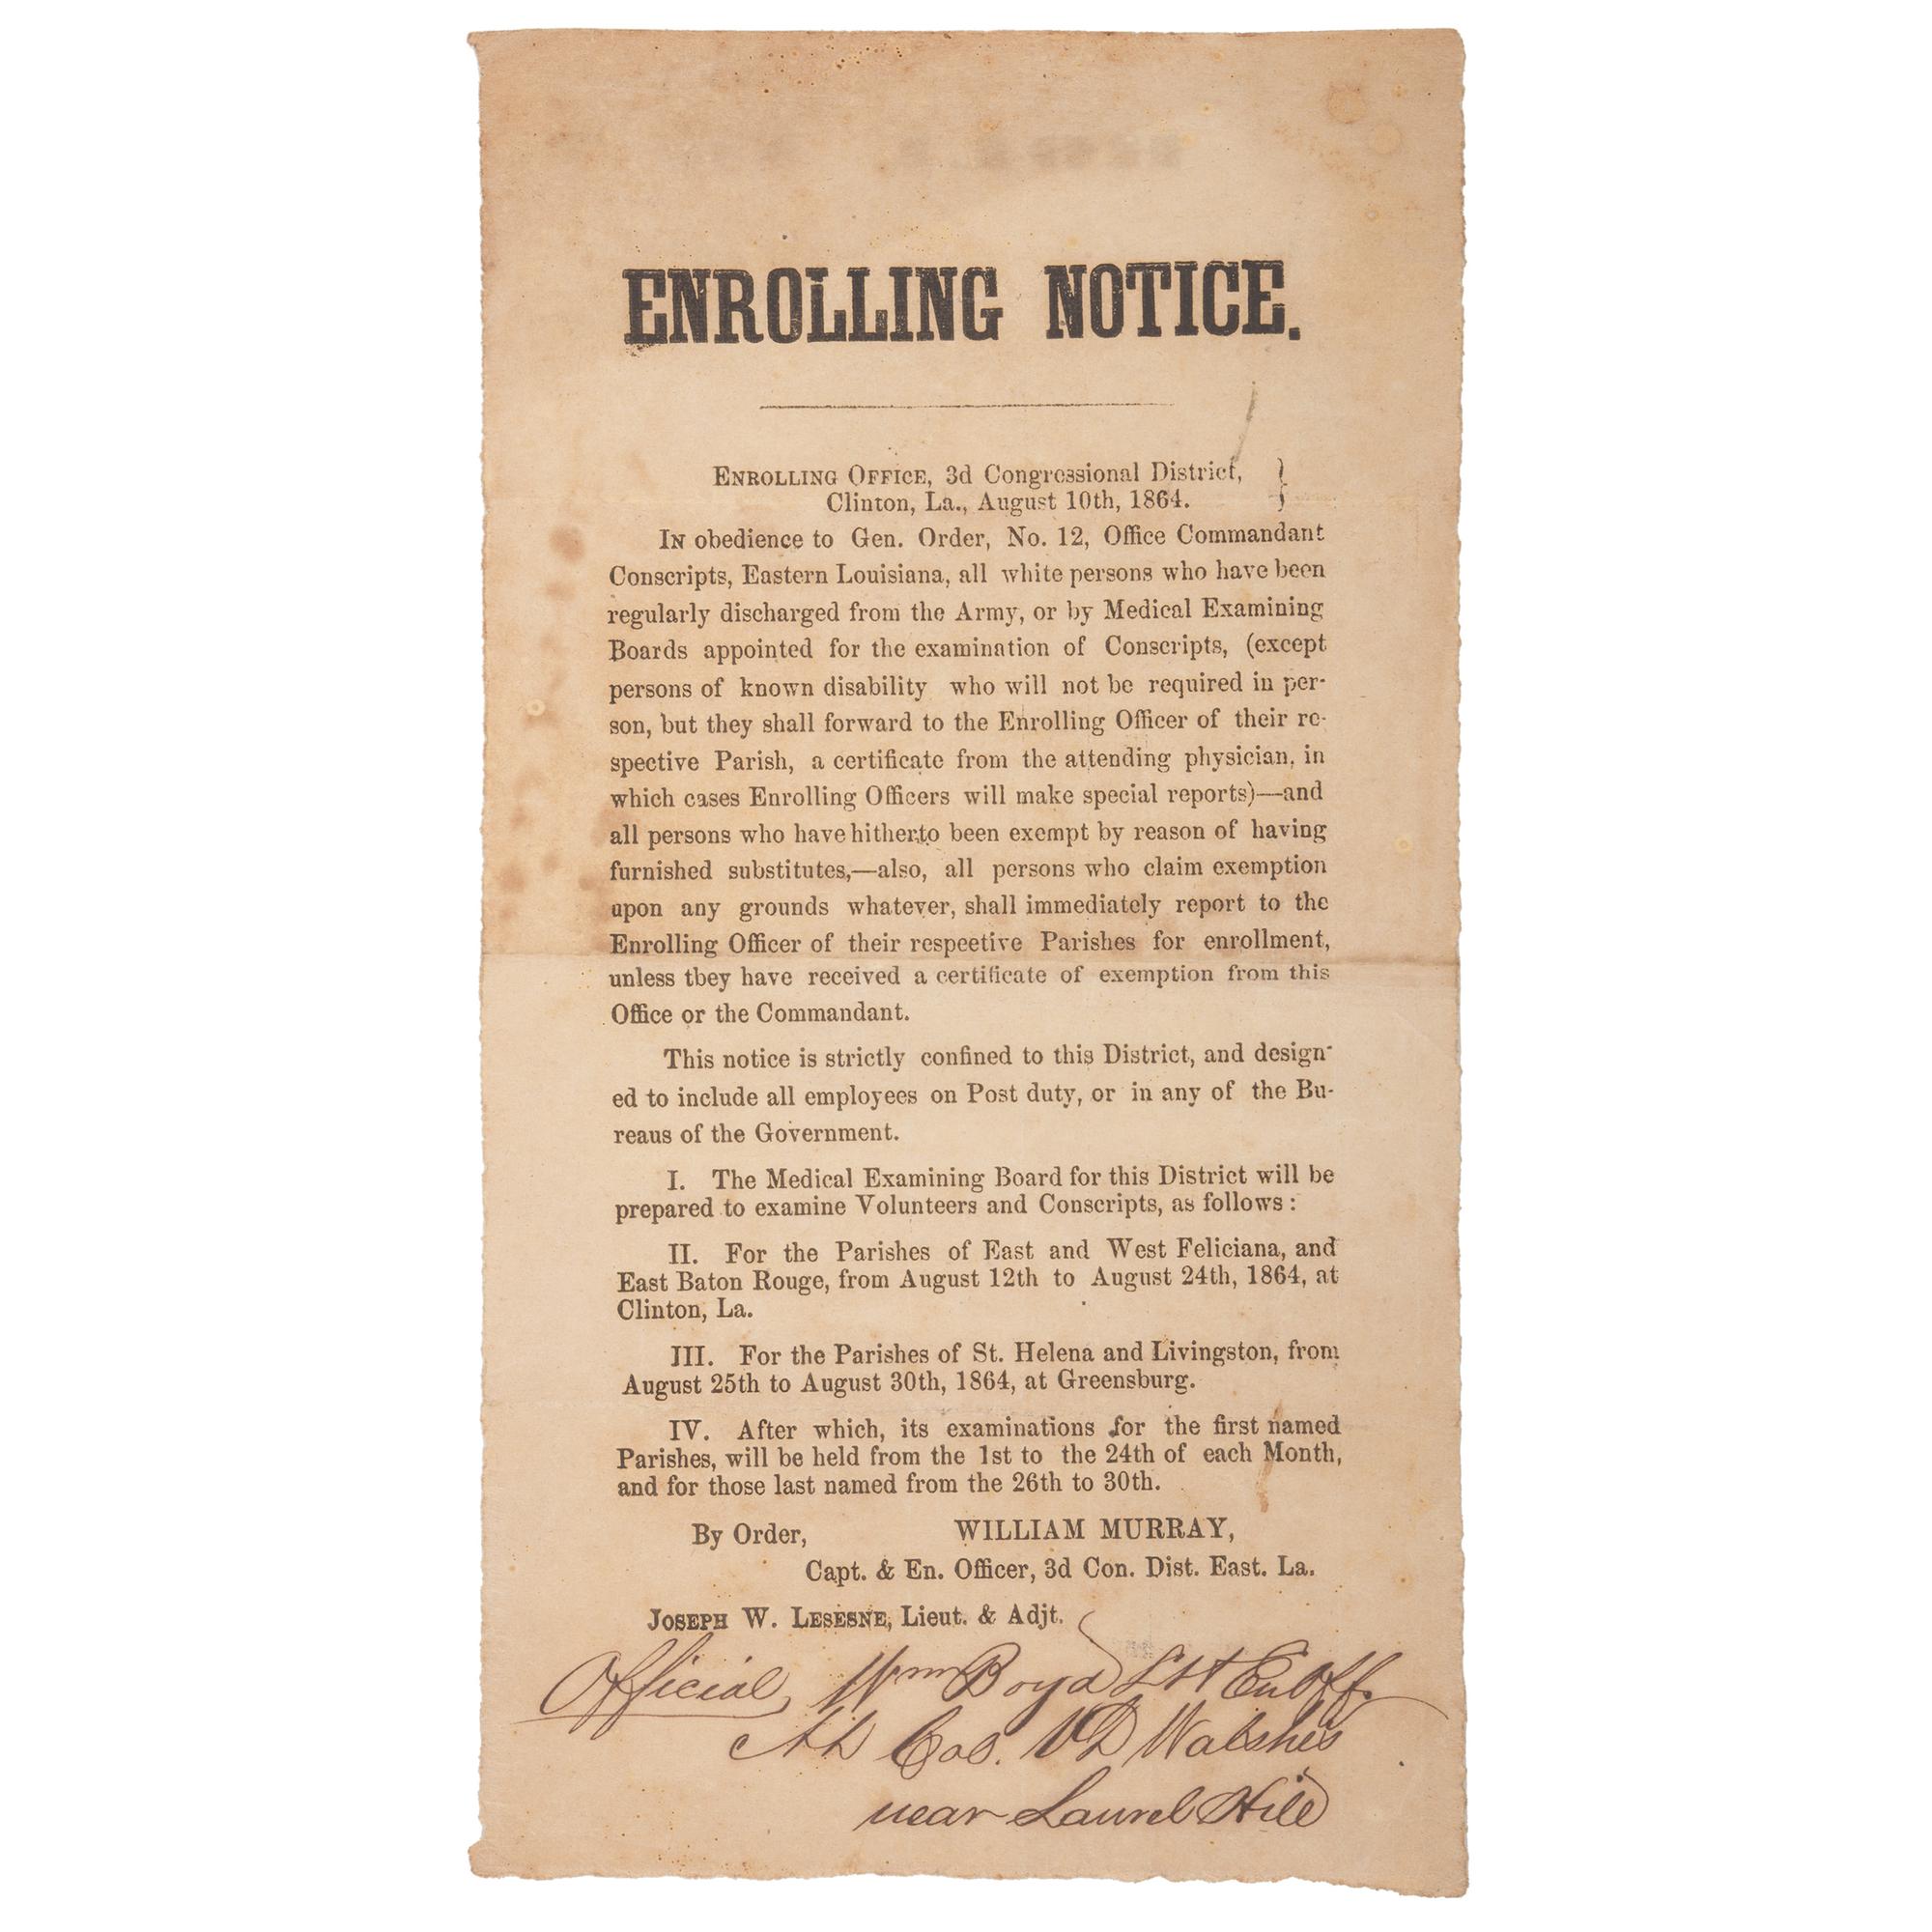 ENROLLING NOTICE.
ENROLLING OFFICE, 3d Congressional District, }
Clinton, La., August 10th, 1864.
IN obedience to Gen. Order, No. 12, Office Commandant
Conscripts, Eastern Louisiana, all white persons who have been
regularly discharged from the Army, or by Medical Examining
Boards appointed for the examination of Conscripts, (except
persons of known disability who will not be required in per-
son, but they shall forward to the Enrolling Officer of their re-
spective Parish, a certificate from the attending physician, in
which cases Enrolling Officers will make special reports)—and
all persons who have hitherto been exempt by reason of having
furnished substitutes,—also, all persons who claim exemption
upon any grounds whatever, shall immediately report to the
Enrolling Officer of their respeetive Parishes for enrollment,
unless tbey have received a certificate of exemption from this
Office or the Commandant.
This notice is strictly confined to this District, and design-
ed to include all employees on Post duty, or in any of the Bu-
reaus of the Government.
I. The Medical Examining Board for this District will be
prepared to examine Volunteers and Conscripts, as follows:
II. For the Parishes of East and West Feliciana, and
East Baton Rouge, from August 12th to August 24th, 1864, at
Clinton, La.
III. For the Parishes of St. Helena and Livingston, from
August 25th to August 30th, 1864, at Greensburg.
IV. After which, its examinations for the first named
Parishes, will be held from the 1st to the 24th of each Month,
and for those last named from the 26th to 30th.
By Order, WILLIAM MURRAY,
Capt. & En. Officer, 3d Con. Dist. East. La.
JOSEPH W. LESESNE, Lieut. & Adjt.
Official, Wm Boyd Lt En Off.
At Col. VD Walshes
near Laurel Hill